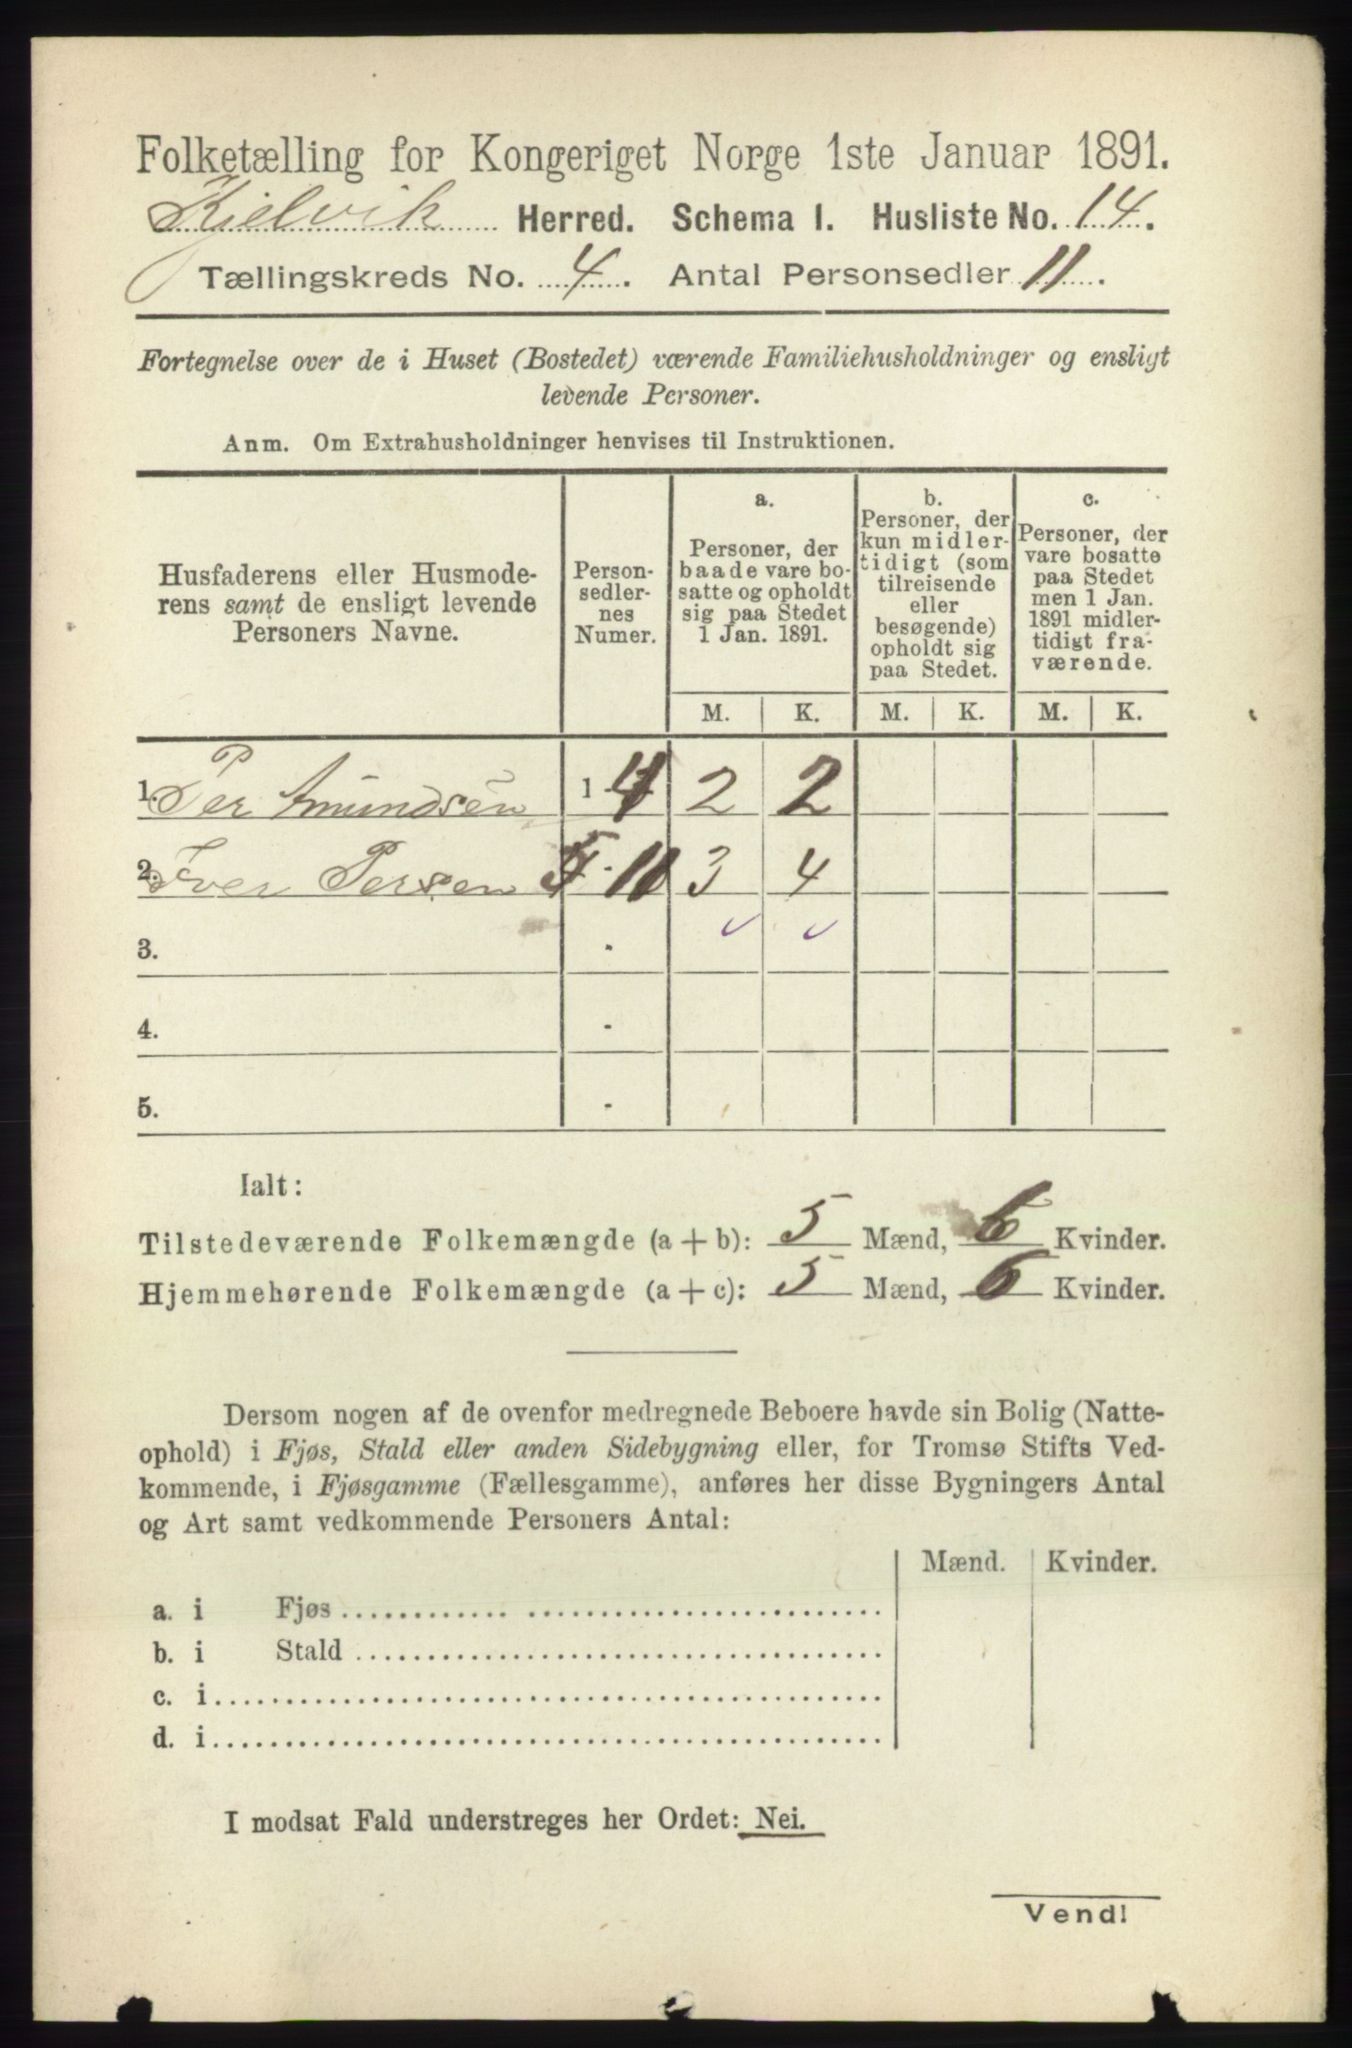 Folketælling for Kongeriget Norge 1ste Januar 1891.
Kjelvik Herred. Schema I. Husliste No. 14.
Tællingskreds No. 4. Antal Personsedler 11.
Fortegnelse over de i Huset (Bostedet) værende Familiehusholdninger og ensligt
levende Personer.
Anm. Om Extrahusholdninger henvises til Instruktionen.
Husfaderens eller Husmode-
rens samt de ensligt levende
Personers Navne.
Person-
sedler-
nes
Numer.
a.
Personer, der
baade vare bo-
satte og opholdt
sig paa Stedet
1 Jan. 1891.
b.
Personer, der
kun midler-
tidigt (som
tilreisende
eller
besøgende)
opholdt sig
paa Stedet.
c.
Personer, der
vare bosatte
paa Stedet
men 1 Jan.
1891 midler-
tidigt fra-
værende.
M. K. M. K. M. K.
1. Per Amundsen 1 - 4 2 2
2. Iver Persen 5 - 11 3 4
3. -
4. -
5. -
Ialt:
Tilstedeværende Folkemængde (a + b): 5 Mænd, 6 Kvinder.
Hjemmehørende Folkemængde (a + c): 5 Mænd, 6 Kvinder.
Dersom nogen af de ovenfor medregnede Beboere havde sin Bolig (Natte-
ophold) i Fjøs, Stald eller anden Sidebygning eller, for Tromsø Stifts Ved-
kommende, i Fjøsgamme (Fællesgamme), anføres her disse Bygningers Antal
og Art samt vedkommende Personers Antal:
Mænd. Kvinder.
a. i Fjøs
b. i Stald
c. i
d. i
I modsat Fald understreges her Ordet: Nei.
Vend!